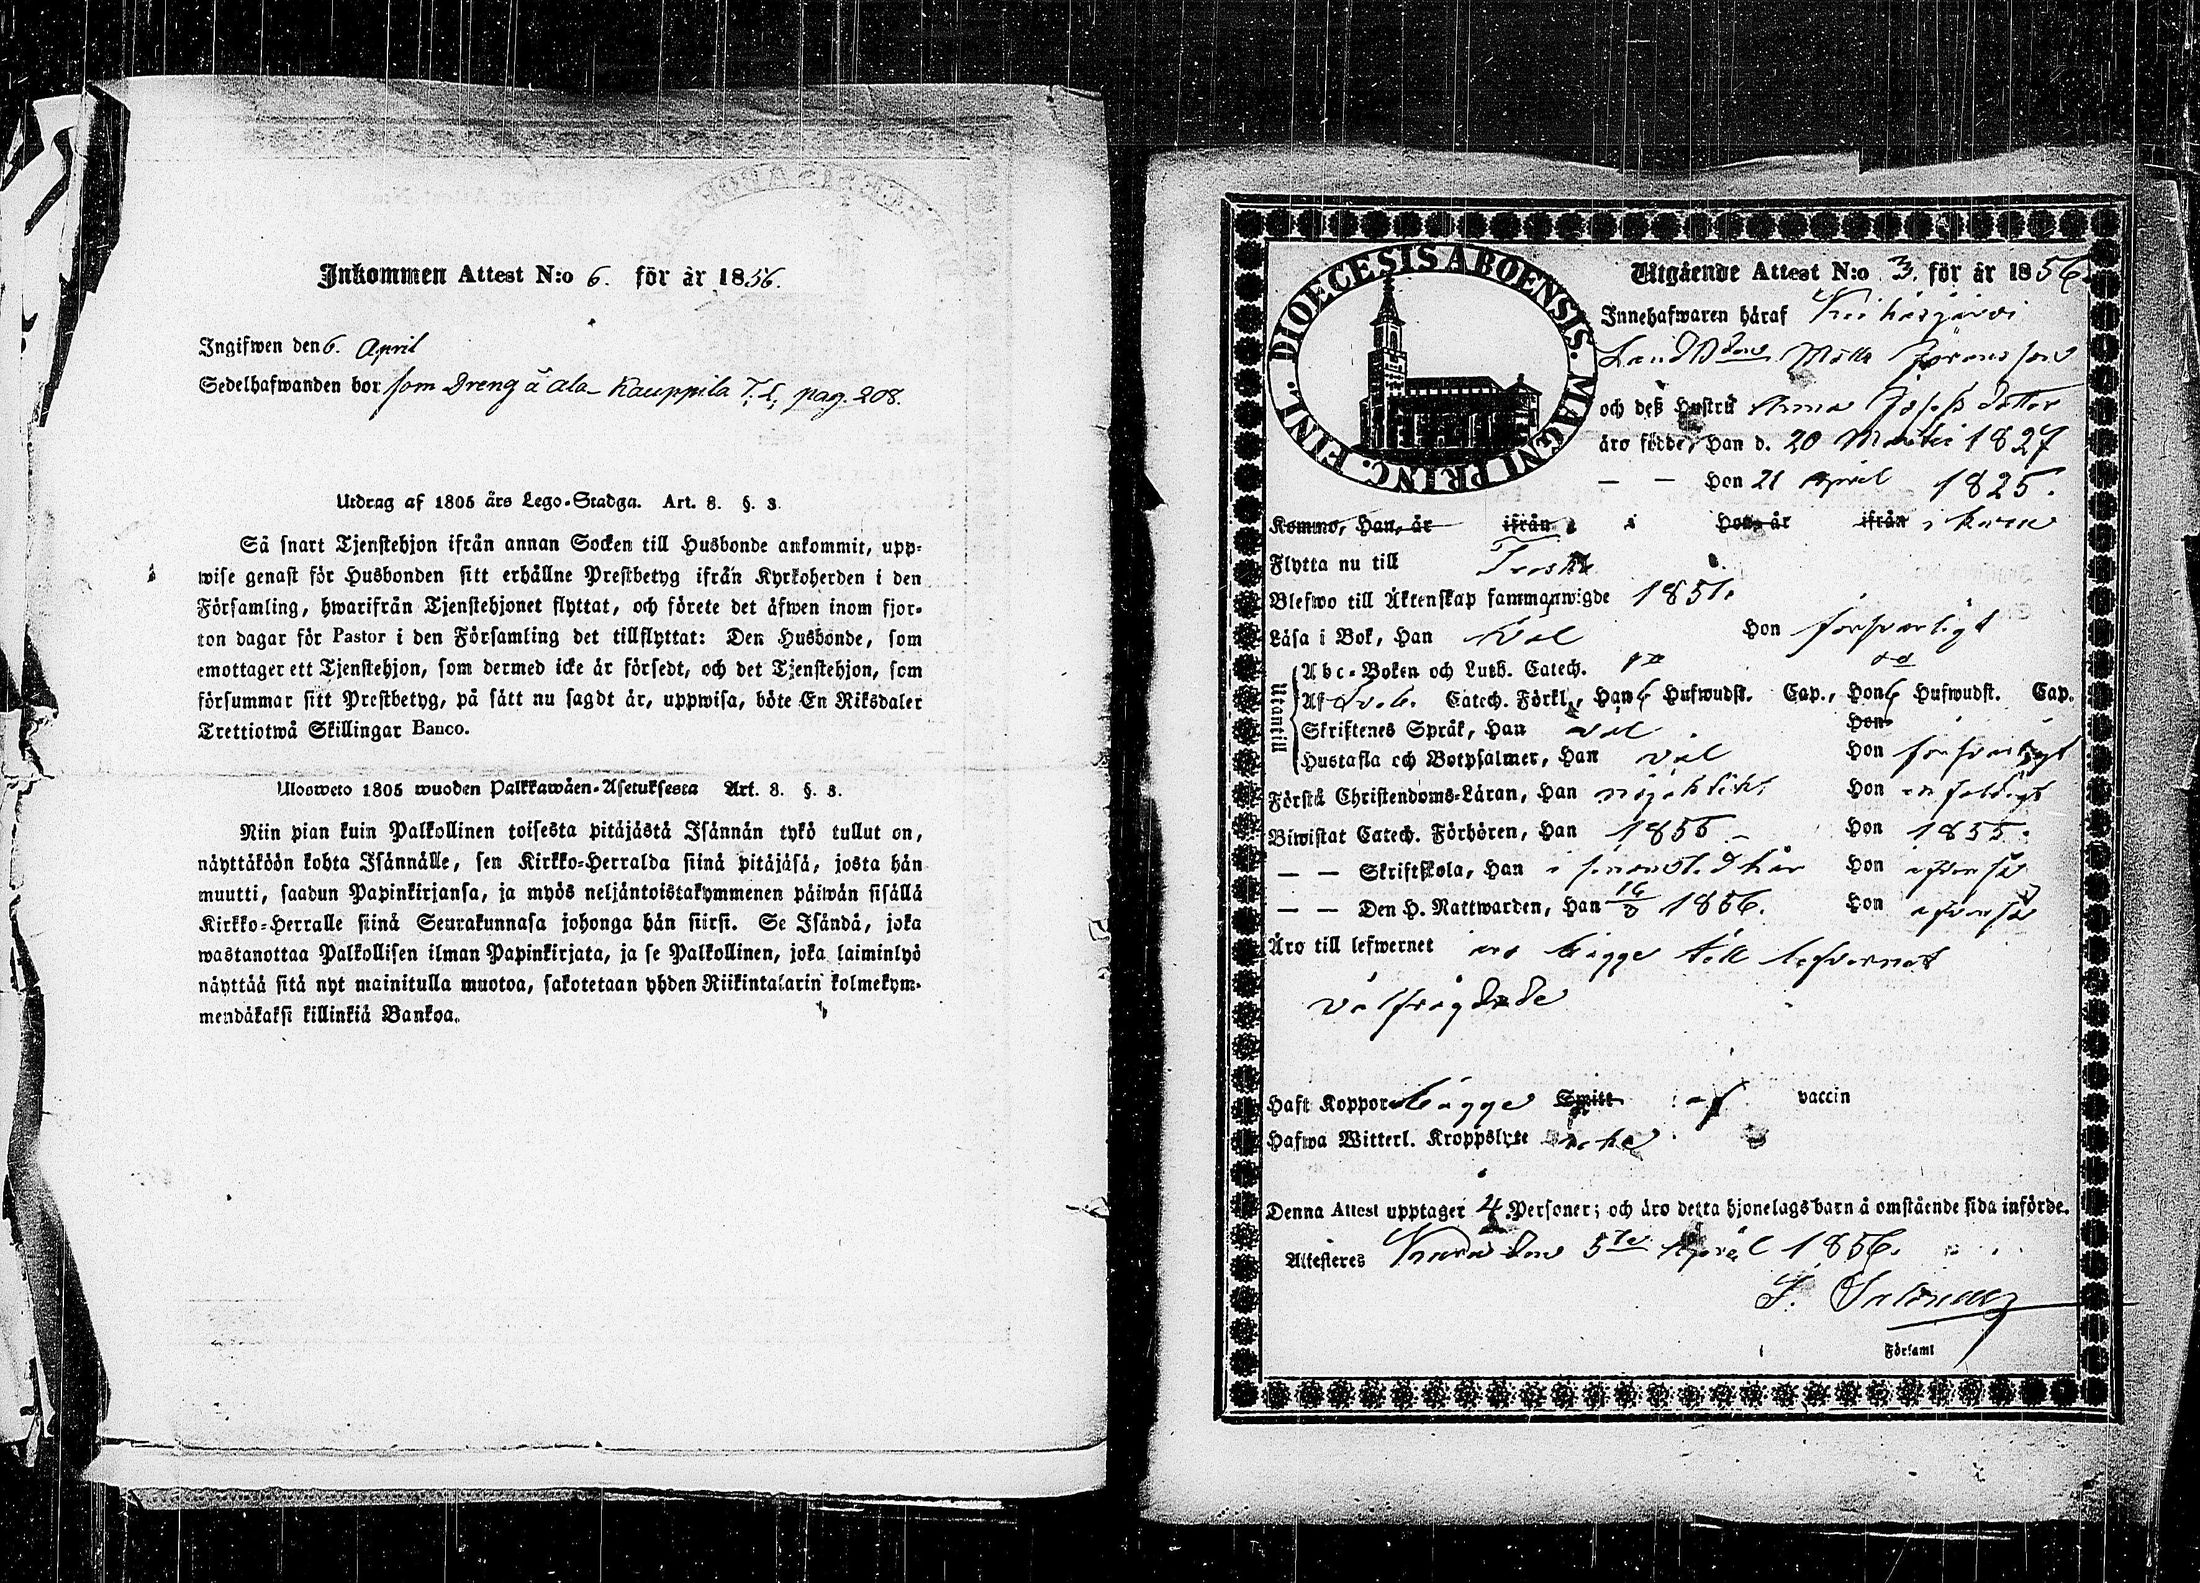 Inkommen Attest N:o 6. för år 1856.
Ingifwen den 6. April
Sedelhafwanden bor som Dreng å Ala Kauppila T. L. pag. 208.
Utdrag af 1805 års Lego-Stadga. Art. 8. §. 3.
Så snart Tjenstehjon ifrån annan Socken till Husbonde ankommit, upp-
wise genast för Husbonden sitt erhållne Prestbetyg ifrån Kyrkoherden i den
Församling, hwarifrån Tjenstehjonet flyttat, och förete det äfwen inom fjor-
ton dagar för Pastor i den Församling det tillflyttat: Den Husbonde, som
emottager ett Tjenstehjon, som dermed icke är försedt, och det Tjenstehjon, som
försummar sitt Prestbetyg, på sätt nu sagdt är, uppwisa, böte En Riksdaler
Trettiotwå Skillingar Banco.
Ulosweto 1805 wuoden Palkkawäen-Asetuksesta Art. 8. §. 3.
Niin pian kuin Palkollinen toisesta pitäjästä Isännän tykö tullut on,
näyttäköön kohta Isännälle, sen Kirkko-Herralda siinä pitäjäsä, josta hän
muutti, saadun Papinkirjansa, ja myös neljäntoistakymmenen päiwän sisällä
Kirkko-Herralle siinä Seurakunnasa johonga hän siirsi. Se Isändä, joka
wastanottaa Palkollisen ilman Papinkirjata, ja se Palkollinen, joka laiminlyö
näyttää sitä nyt mainitulla muotoa, sakotetaan yhden Riikintalarin kolmekym-
mendäkaksi killinkiä Bankoa.
DIOECESIS ABOENSIS. MAGNI PRINC. FINL.
Utgående Attest N:o 3. för år 1856.
Innehafwaren häraf
Matts Jöransson
och deß Hustru Anna Josefsdotter
äro födde, Han d. 20 Martii 1827
— — Hon 21 April 1825.
Kommo, Han, år ifrån Hon, år ifrån
Flytta nu till
Blefwo till Äktenskap sammanwigde 1851.
Läsa i Bok, Han Väl Hon försvarligt
Utantill
Abc-Boken och Luth. Catech.
Af Sveb. Catech. Förkl., Han 6 Hufwudst. Cap., Hon 6 Hufwudst. Cap.
Skriftenes Språk, Han väl Hon
Hustafla och Botpsalmer, Han väl Hon försvarligt
Förstå Christendoms-Läran, Han nöjaktigt Hon enfaldigt
Biwistat Catech. Förhören, Han 1855 Hon 1855.
— — Skriftskola, Han Hon äfvenså
— — Den H. Nattwarden, Han 16/3 1856. Hon äfvenså
Äro till lefwernet äro bägge till lefvernet
välfrägdade
Haft Koppor bägge Smitt af vaccin
Hafwa Witterl. Kroppslyte icke
Denna Attest upptager 4. Personer; och äro detta hjonelags barn å omstående sida införde.
Attesteres den 5te April 1856.
Församl